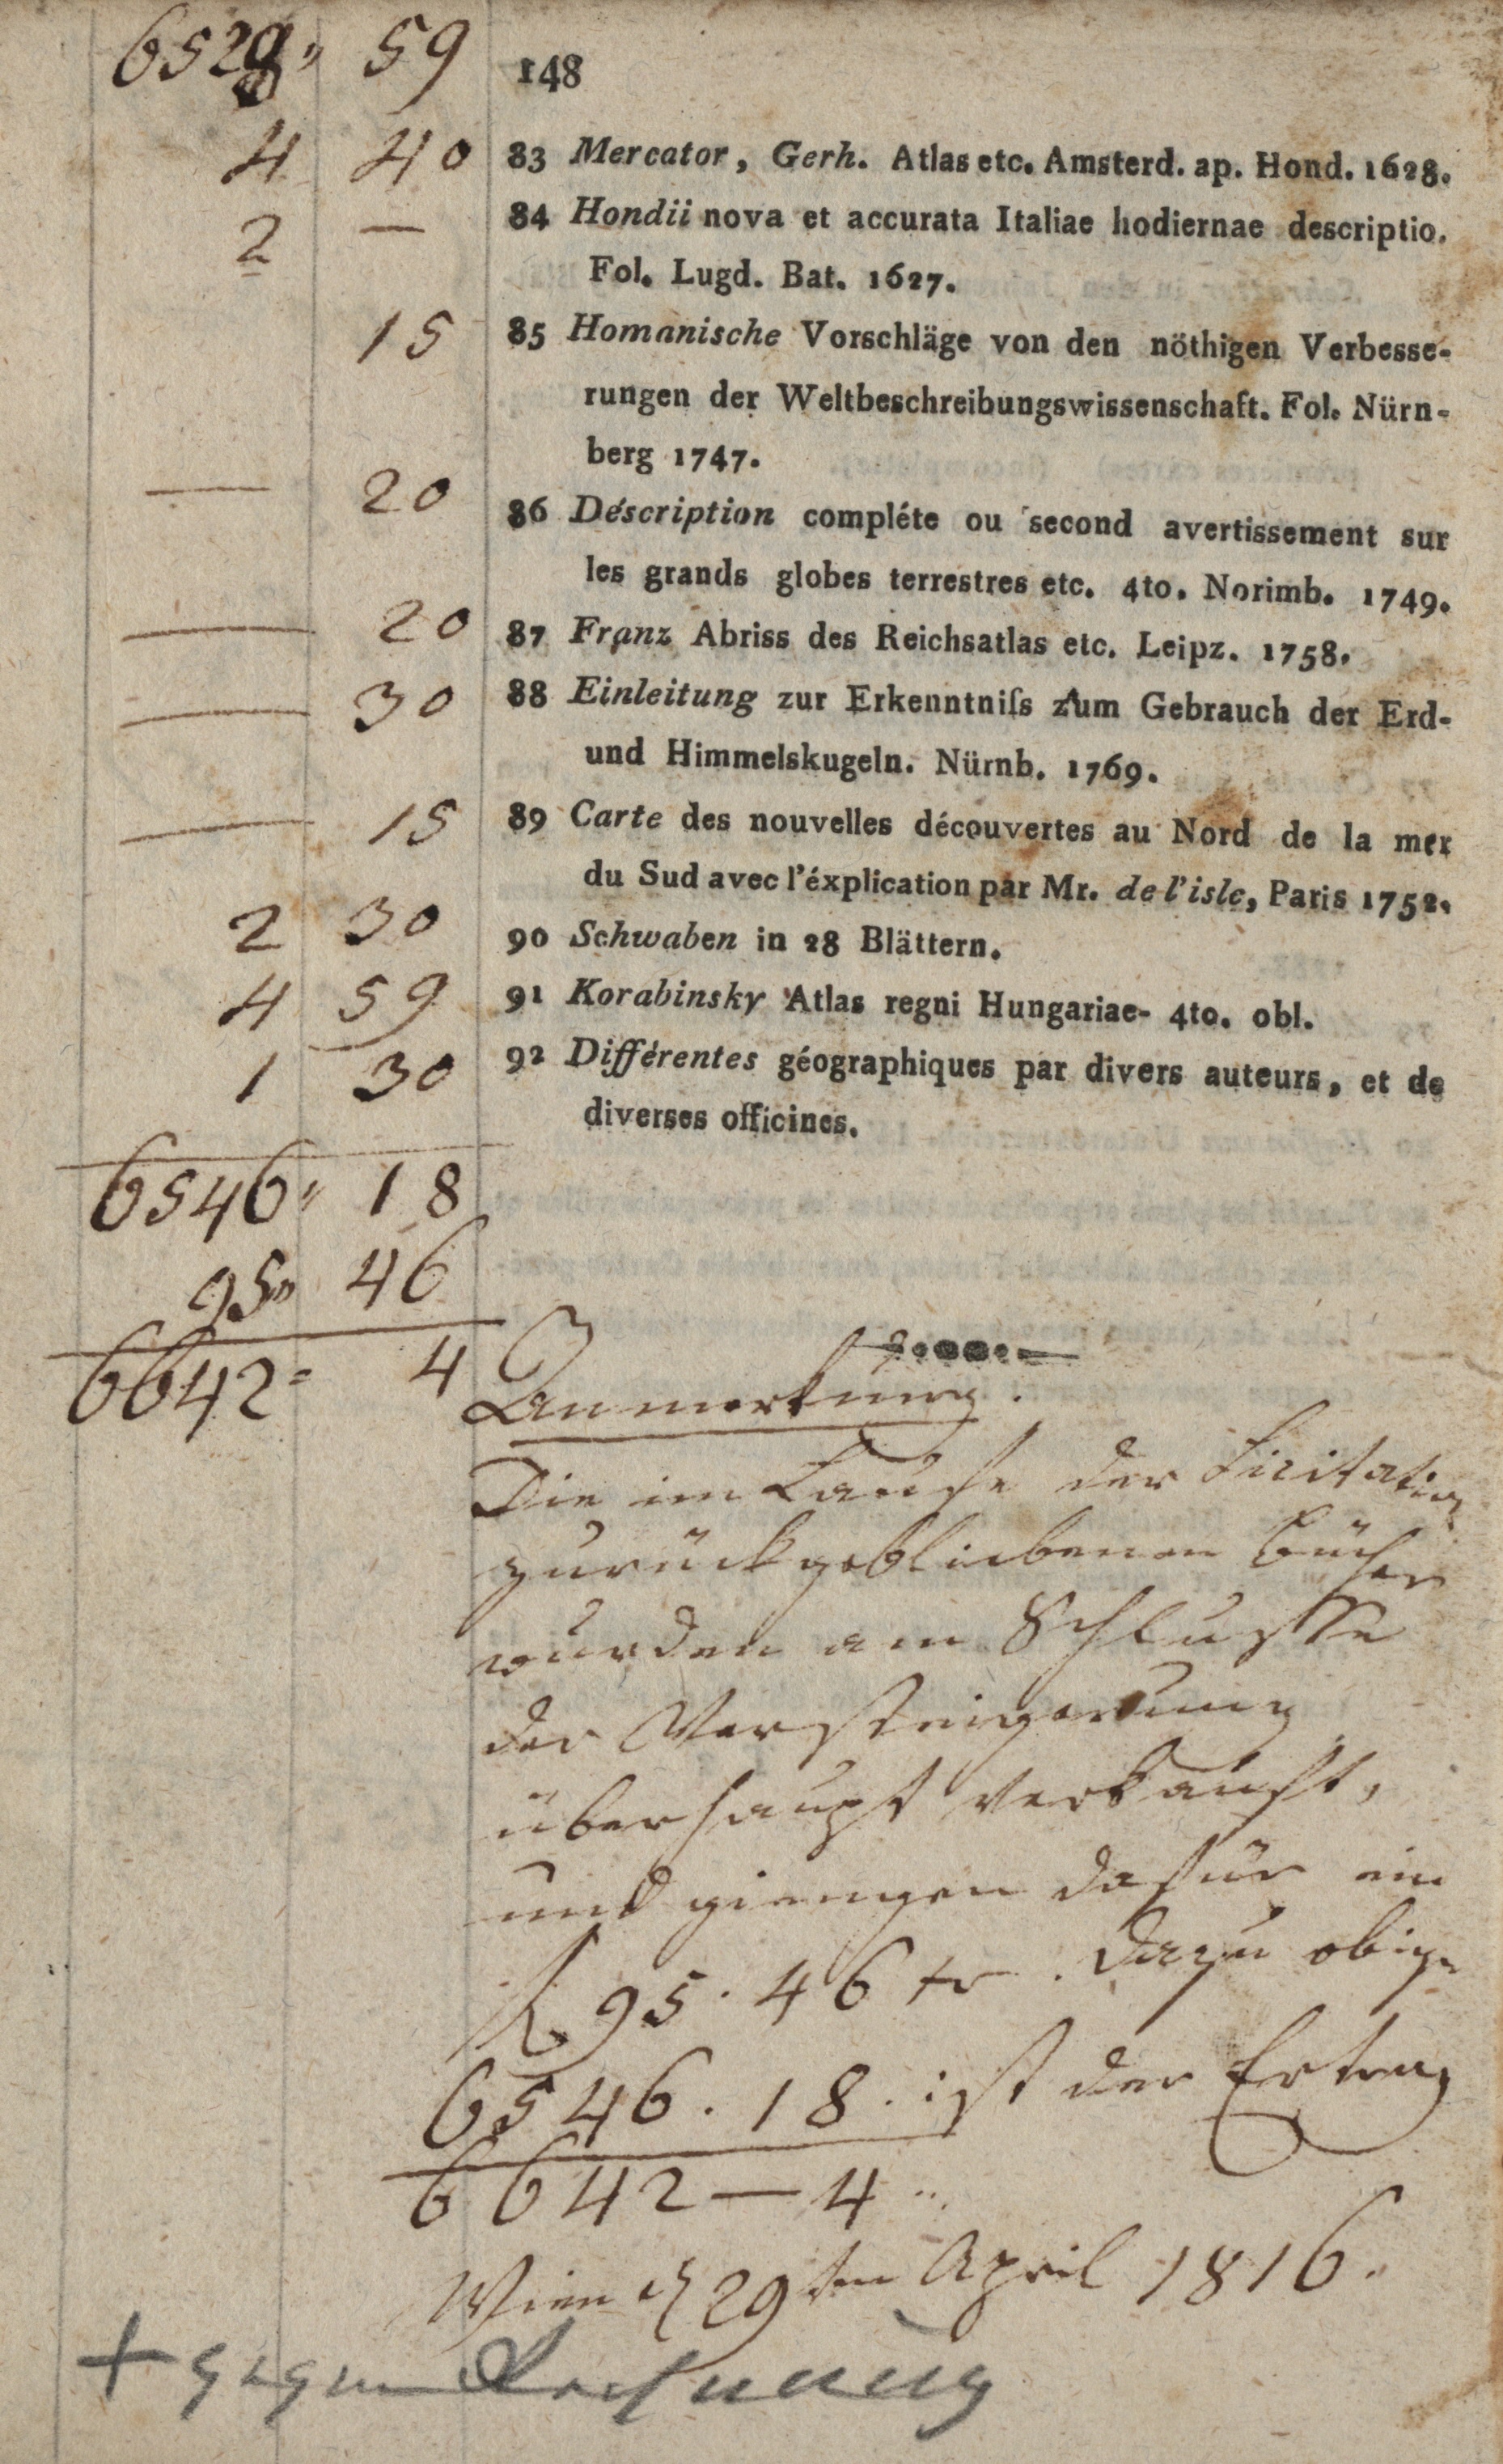 6528 " 59
148
4 40 83 Mercator, Gerh. Atlas etc. Amsterd. ap. Hond. 1628.
2 — 84 Hondii nova et accurata Italiae hodiernae descriptio.
Fol. Lugd. Bat. 1627.
15 85 Homanische Vorschläge von den nöthigen Verbesse-
rungen der Weltbeschreibungswissenschaft. Fol. Nürn-
berg 1747.
— 20 86 Déscription compléte ou second avertissement sur
les grands globes terrestres etc. 4to. Norimb. 1749.
— 20 87 Franz Abriss des Reichsatlas etc. Leipz. 1758.
— 30 88 Einleitung zur Erkenntniſs zum Gebrauch der Erd-
und Himmelskugeln. Nürnb. 1769.
— 15 89 Carte des nouvelles découvertes au Nord de la mer
du Sud avec l'éxplication par Mr. de l'isle, Paris 1752.
2 30 90 Schwaben in 28 Blättern.
4 59 91 Korabinsky Atlas regni Hungariae- 4to. obl.
1 30 92 Différentes géographiques par divers auteurs, et de
diverses officines.
6546 " 18
95 " 46
6642 = 4
Anmerkung.
Die im Laufe der Licitation
zurückgebliebenen Bücher
wurden am Schlusse
der Versteigerung
überhaupt verkauft,
und giengen dafür ein
f 95 . 46 kr . Dazu obige
6546 . 18 . ist der Ertrag
6642 — 4 ..
Wien d 29ten April 1816.
+ gegen Rechnung